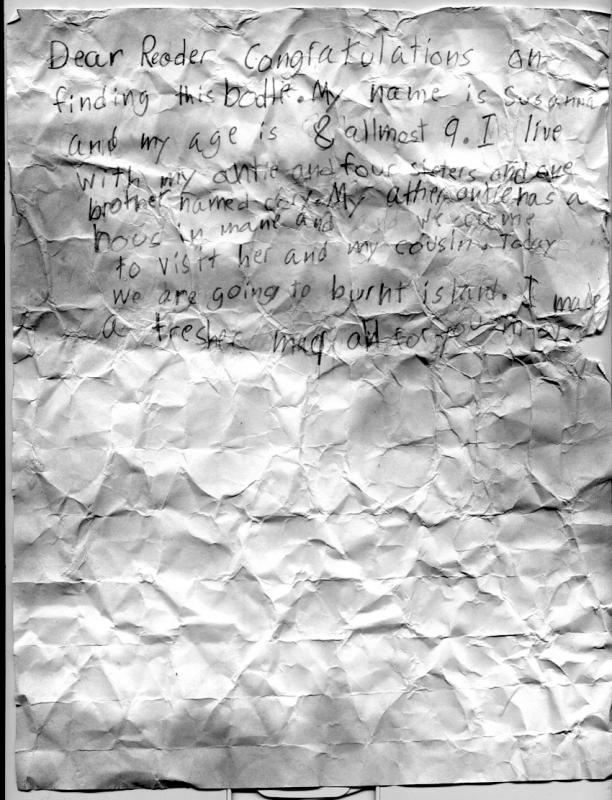 Dear Reader Congratulations on
finding this bodtle. My name is Susanna
and my age is 8 allmost 9. I live
with my antie and four sisters and one
brother named My auther auntie has a
hous in mane and we come
to visit her and my cousin. Today
we are going to burnt island. I made
a tresher map all for you